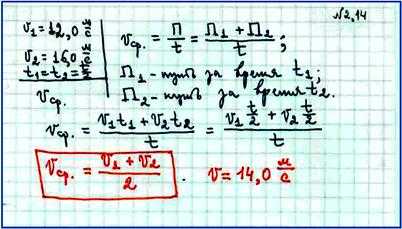 №2,14
v₁=12,0 м/с
v₂=16,0 м/с
t₁=t₂=t/2
vср.
vср. = П/t = (П₁+П₂)/t ;
П₁ - путь за время t₁;
П₂ - путь за время t₂.
vср. = (v₁t₁+v₂t₂)/t = (v₁ t/2 + v₂ t/2)/t
vср. = (v₁+v₂)/2 . v=14,0 м/с